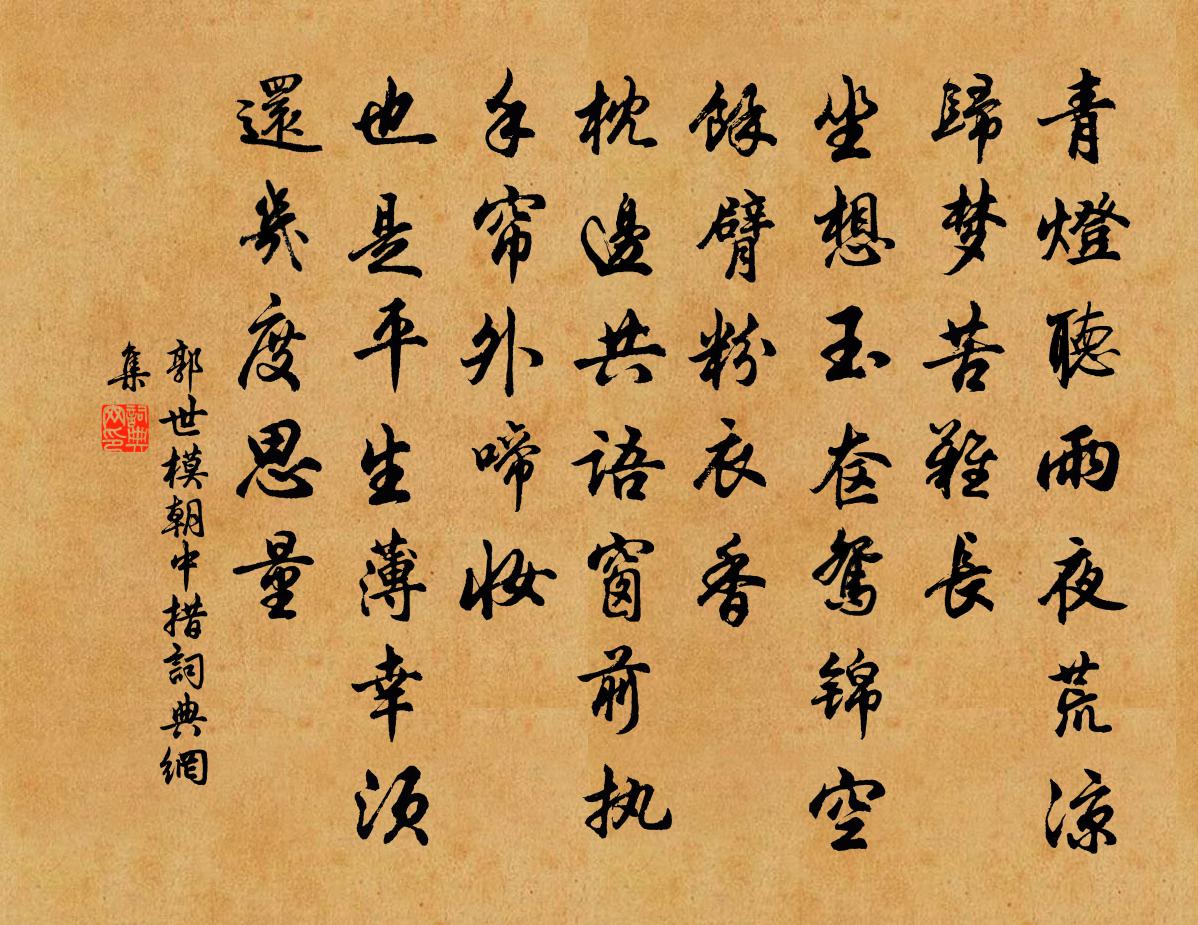 青燈聽雨夜荒涼
歸梦苦難長
坐想玉奁鴛锦空
餘臂粉衣香
枕邊共語窗前执
手帘外啼妆
也是平生薄幸須
還幾度思量
郭世模朝中措詞典網
集
詞典网印